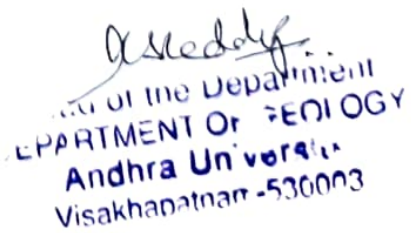 KSReddy
Head of the Department
DEPARTMENT OF GEOLOGY
Andhra University
Visakhapatnam-530003